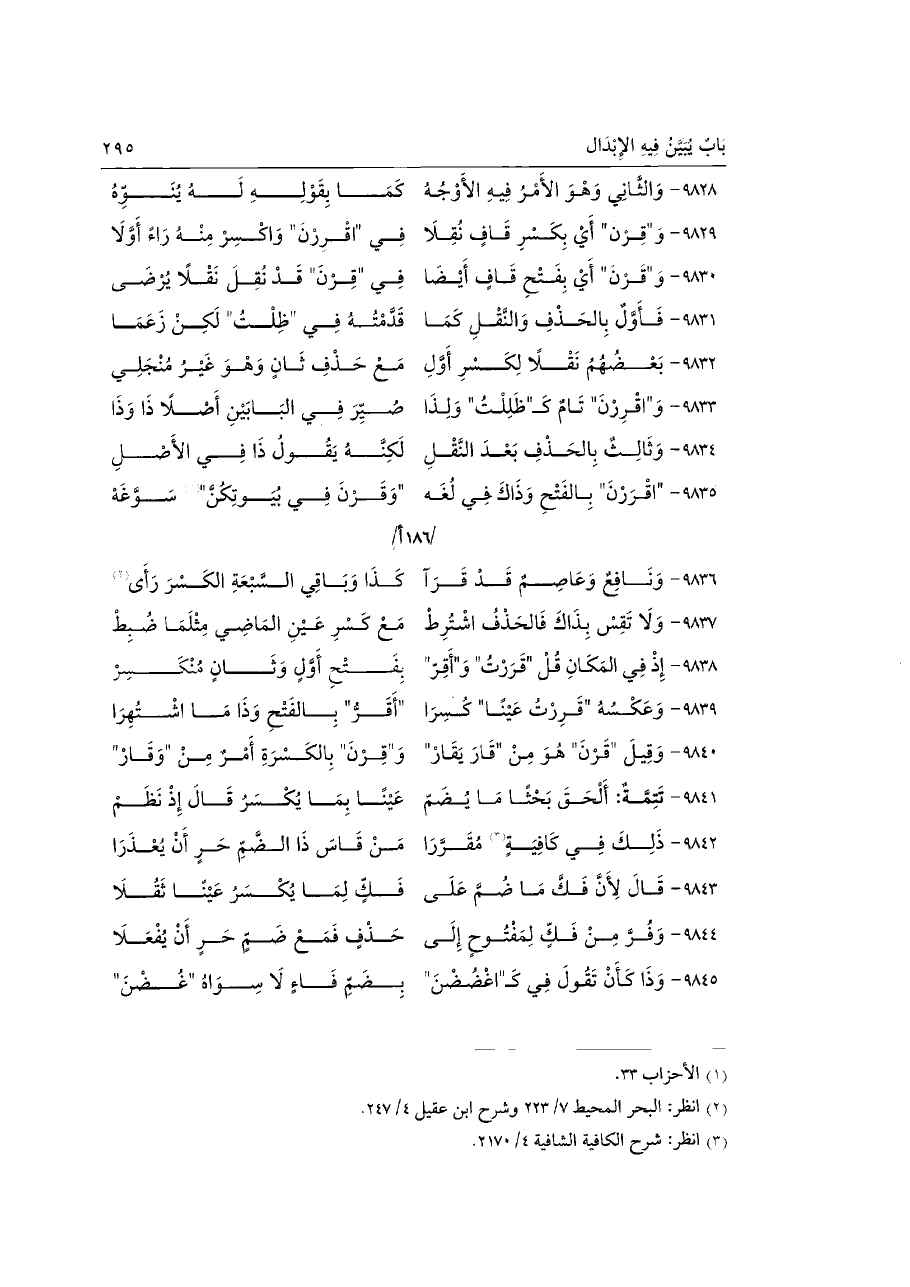 بَابٌ يُبَيَّنُ فِيهِ الإِبْدَال ٢٩٥
٩٨٢٨- وَالثَّانِي وَهْوَ الأَمْرُ فِيهِ الأَوْجُهُ كَمَا بِقَوْلِهِ لَهُ يُنَوِّهُ
٩٨٢٩- وَ"قِرْنَ" أَيْ بِكَسْرِ قَافٍ نُقِلَا فِي "اقْرِرْنَ" وَاكْسِرْ مِنْهُ رَاءً أَوَّلَا
٩٨٣٠- وَ"قَرْنَ" أَيْ بِفَتْحِ قَافٍ أَيْضَا فِي "قِرْنَ" قَدْ نُقِلَ نَقْلًا يُرْضَى
٩٨٣١- فَأَوَّلٌ بِالحَذْفِ وَالنَّقْلِ كَمَا قَدَّمْتُهُ فِي "ظِلْتُ" لَكِنْ زَعَمَا
٩٨٣٢- بَعْضُهُمُ نَقْلًا لِكَسْرِ أَوَّلِ مَعْ حَذْفِ ثَانٍ وَهْوَ غَيْرُ مُنْجَلِي
٩٨٣٣- وَ"اقْرِرْنَ" تَامٌ كَـ"ظَلِلْتُ" وَلِذَا صُيِّرَ فِي البَابَيْنِ أَصْلًا ذَا وَذَا
٩٨٣٤- وَثَالِثٌ بِالحَذْفِ بَعْدَ النَّقْلِ لَكِنَّهُ يَقُولُ ذَا فِي الأَصْلِ
٩٨٣٥- "اقْرَرْنَ" بِالفَتْحِ وَذَاكَ فِي لُغَه "وَقَرْنَ فِي بُيُوتِكُنَّ"(١) سَوَّغَهْ
/١٨٦أ/
٩٨٣٦- وَنَافِعٌ وَعَاصِمٌ قَدْ قَرَآ كَذَا وَبَاقِي السَّبْعَةِ الكَسْرَ رَأَى(٢)
٩٨٣٧- وَلَا تَقِسْ بِذَاكَ فَالحَذْفُ اشْتُرِطْ مَعْ كَسْرِ عَيْنِ المَاضِي مِثْلَمَا ضُبِطْ
٩٨٣٨- إِذْ فِي المَكَانِ قُلْ "قَرَرْتُ" وَ"أَقِرّ" بِفَتْحِ أَوَّلٍ وَثَانٍ مُنْكَسِرْ
٩٨٣٩- وَعَكْسُهُ "قَرِرْتُ عَيْنًا" كُسِرَا "أَقَرُّ" بِالفَتْحِ وَذَا مَا اشْتُهِرَا
٩٨٤٠- وَقِيلَ "قَرْنَ" هُوَ مِنْ "قَارَ يَقَارْ" وَ"قِرْنَ" بِالكَسْرَةِ أَمْرٌ مِنْ "وَقَارْ"
٩٨٤١- تَتِمَّةٌ: أَلْحَقَ بَحْثًا مَا يُضَمّ عَيْنًا بِمَا يُكْسَرُ قَالَ إِذْ نَظَمْ
٩٨٤٢- ذَلِكَ فِي كَافِيَةٍ(٣) مُقَرَّرَا مَنْ قَاسَ ذَا الضَّمِّ حَرٍ أَنْ يُعْذَرَا
٩٨٤٣- قَالَ لِأَنَّ فَكَّ مَا ضُمَّ عَلَى فَكٍّ لِمَا يُكْسَرُ عَيْنًا ثَقُلَا
٩٨٤٤- وَفُرَّ مِنْ فَكٍّ لِمَفْتُوحٍ إِلَى حَذْفٍ فَمَعْ ضَمٍّ حَرٍ أَنْ يُفْعَلَا
٩٨٤٥- وَذَا كَأَنْ تَقُولَ فِي كَـ"اغْضُضْنَ" بِضَمِّ فَاءٍ لَا سِوَاهُ "غُضْنَ"
(١) الأحزاب ٣٣.
(٢) انظر: البحر المحيط ٧/ ٢٢٣ وشرح ابن عقيل ٤/ ٢٤٧.
(٣) انظر: شرح الكافية الشافية ٤/ ٢١٧٠.